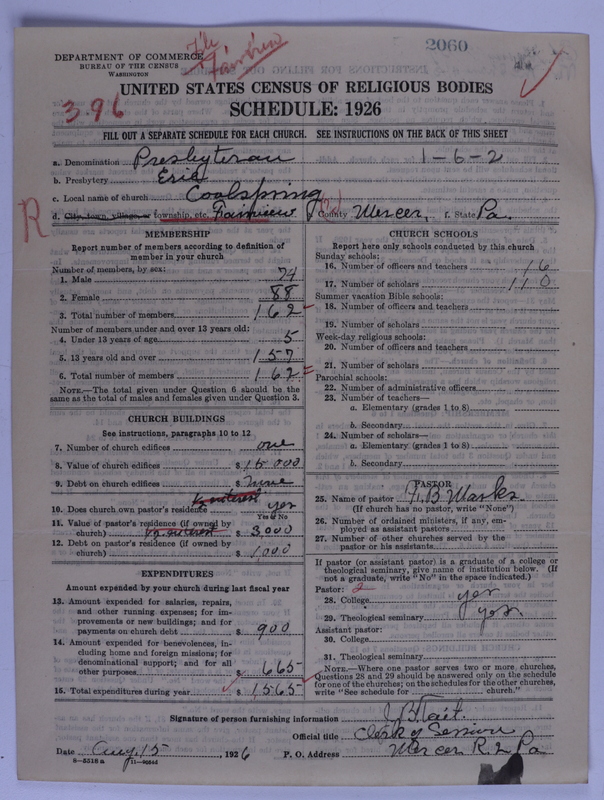 File
Fairview
2060
DEPARTMENT OF COMMERCE
BUREAU OF THE CENSUS
WASHINGTON
396
UNITED STATES CENSUS OF RELIGIOUS BODIES
SCHEDULE: 1926
FILL OUT A SEPARATE SCHEDULE FOR EACH CHURCH. SEE INSTRUCTIONS ON THE BACK OF THIS SHEET
a. Denomination Presbyterian 1-6-2
b. Presbytery Erie
c. Local name of church Coolspring
R d. City, town, village, or township, etc. Fairview County Mercer, f. State Pa.
MEMBERSHIP
Report number of members according to definition of
member in your church
Number of members, by sex:
1. Male 74
2. Female 88
3. Total number of members 162
Number of members under and over 13 years old:
4. Under 13 years of age 5
5. 13 years old and over 157
6. Total number of members 162
NOTE.—The total given under Question 6 should be the
same as the total of males and females given under Question 3.
CHURCH BUILDINGS
See instructions, paragraphs 10 to 12
7. Number of church edifices one
8. Value of church edifices $ 15000
9. Debt on church edifices $ none
10. Does church own pastor's residence yes
Yes or No
11. Value of pastor's residence (if owned by
church) ½ interest $ 3,000
12. Debt on pastor's residence (if owned by
church) $ 1,000
EXPENDITURES
Amount expended by your church during last fiscal year
13. Amount expended for salaries, repairs,
and other running expenses; for im-
provements or new buildings; and for
payments on church debt $ 900
14. Amount expended for benevolences, in-
cluding home and foreign missions; for
denominational support; and for all
other purposes $ 665
15. Total expenditures during year $ 1565
CHURCH SCHOOLS
Report here only schools conducted by this church
Sunday schools:
16. Number of officers and teachers 16
17. Number of scholars 110
Summer vacation Bible schools:
18. Number of officers and teachers
19. Number of scholars
Week-day religious schools:
20. Number of officers and teachers
21. Number of scholars
Parochial schools:
22. Number of administrative officers
23. Number of teachers—
a. Elementary (grades 1 to 8)
b. Secondary
24. Number of scholars—
a. Elementary (grades 1 to 8)
b. Secondary
PASTOR
25. Name of pastor B Marks
(If church has no pastor, write "None")
26. Number of ordained ministers, if any, em-
ployed as assistant pastors
27. Number of other churches served by the
pastor or his assistants
If pastor (or assistant pastor) is a graduate of a college or
theological seminary, give name of institution below. (If
not a graduate, write "No" in the space indicated.)
Pastor: 2
28. College yes
29. Theological seminary yes
Assistant pastor:
30. College
31. Theological seminary
NOTE.—Where one pastor serves two or more churches,
Questions 28 and 29 should be answered only on the schedule
for one of the churches; on the schedules for the other churches,
write "See schedule for church."
Signature of person furnishing information
Official title Clerk of Session
Date Aug. 15, 1926 P. O. Address Mercer R. 2 Pa
8—5318 a